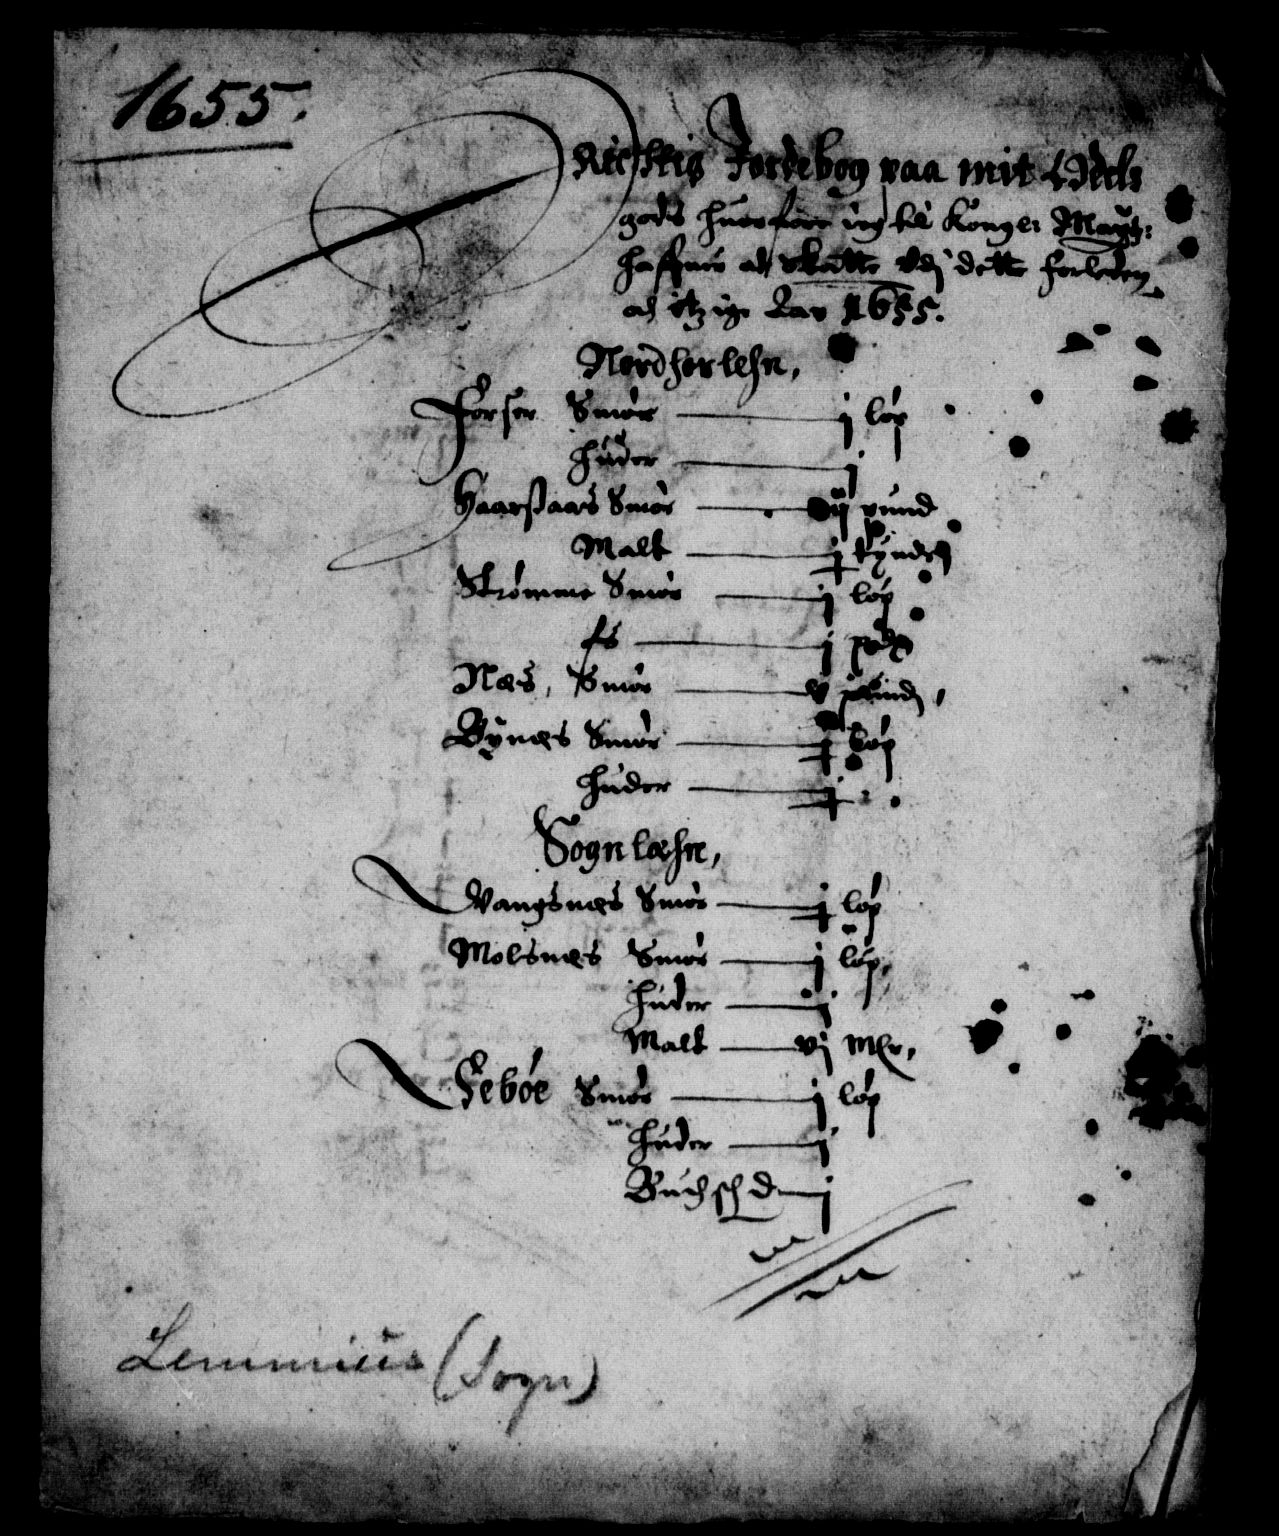 1655.
Richtig Jordebog paa mit Edels
gods huorfore ieg till Konge: Maytz:
haffuer at skatte Udj dette forleden
och itzige Aar 1655.
Nordhorlehn,
Forser Smør j løp
huder j
Haarstaars Smør ij pund
Malt j tynde
Strømme Smør j løp
j
Næs, Smør v pund,
Bynes Smør j løp
huder j
Sognlæhn,
Vangsnæs Smør j løp
Molsnæs Smør j løp,
huder j
Malt vj Mlr,
Febøe Smør j løp
huder j
Buchsk d j
Lemmicus (Sogn)